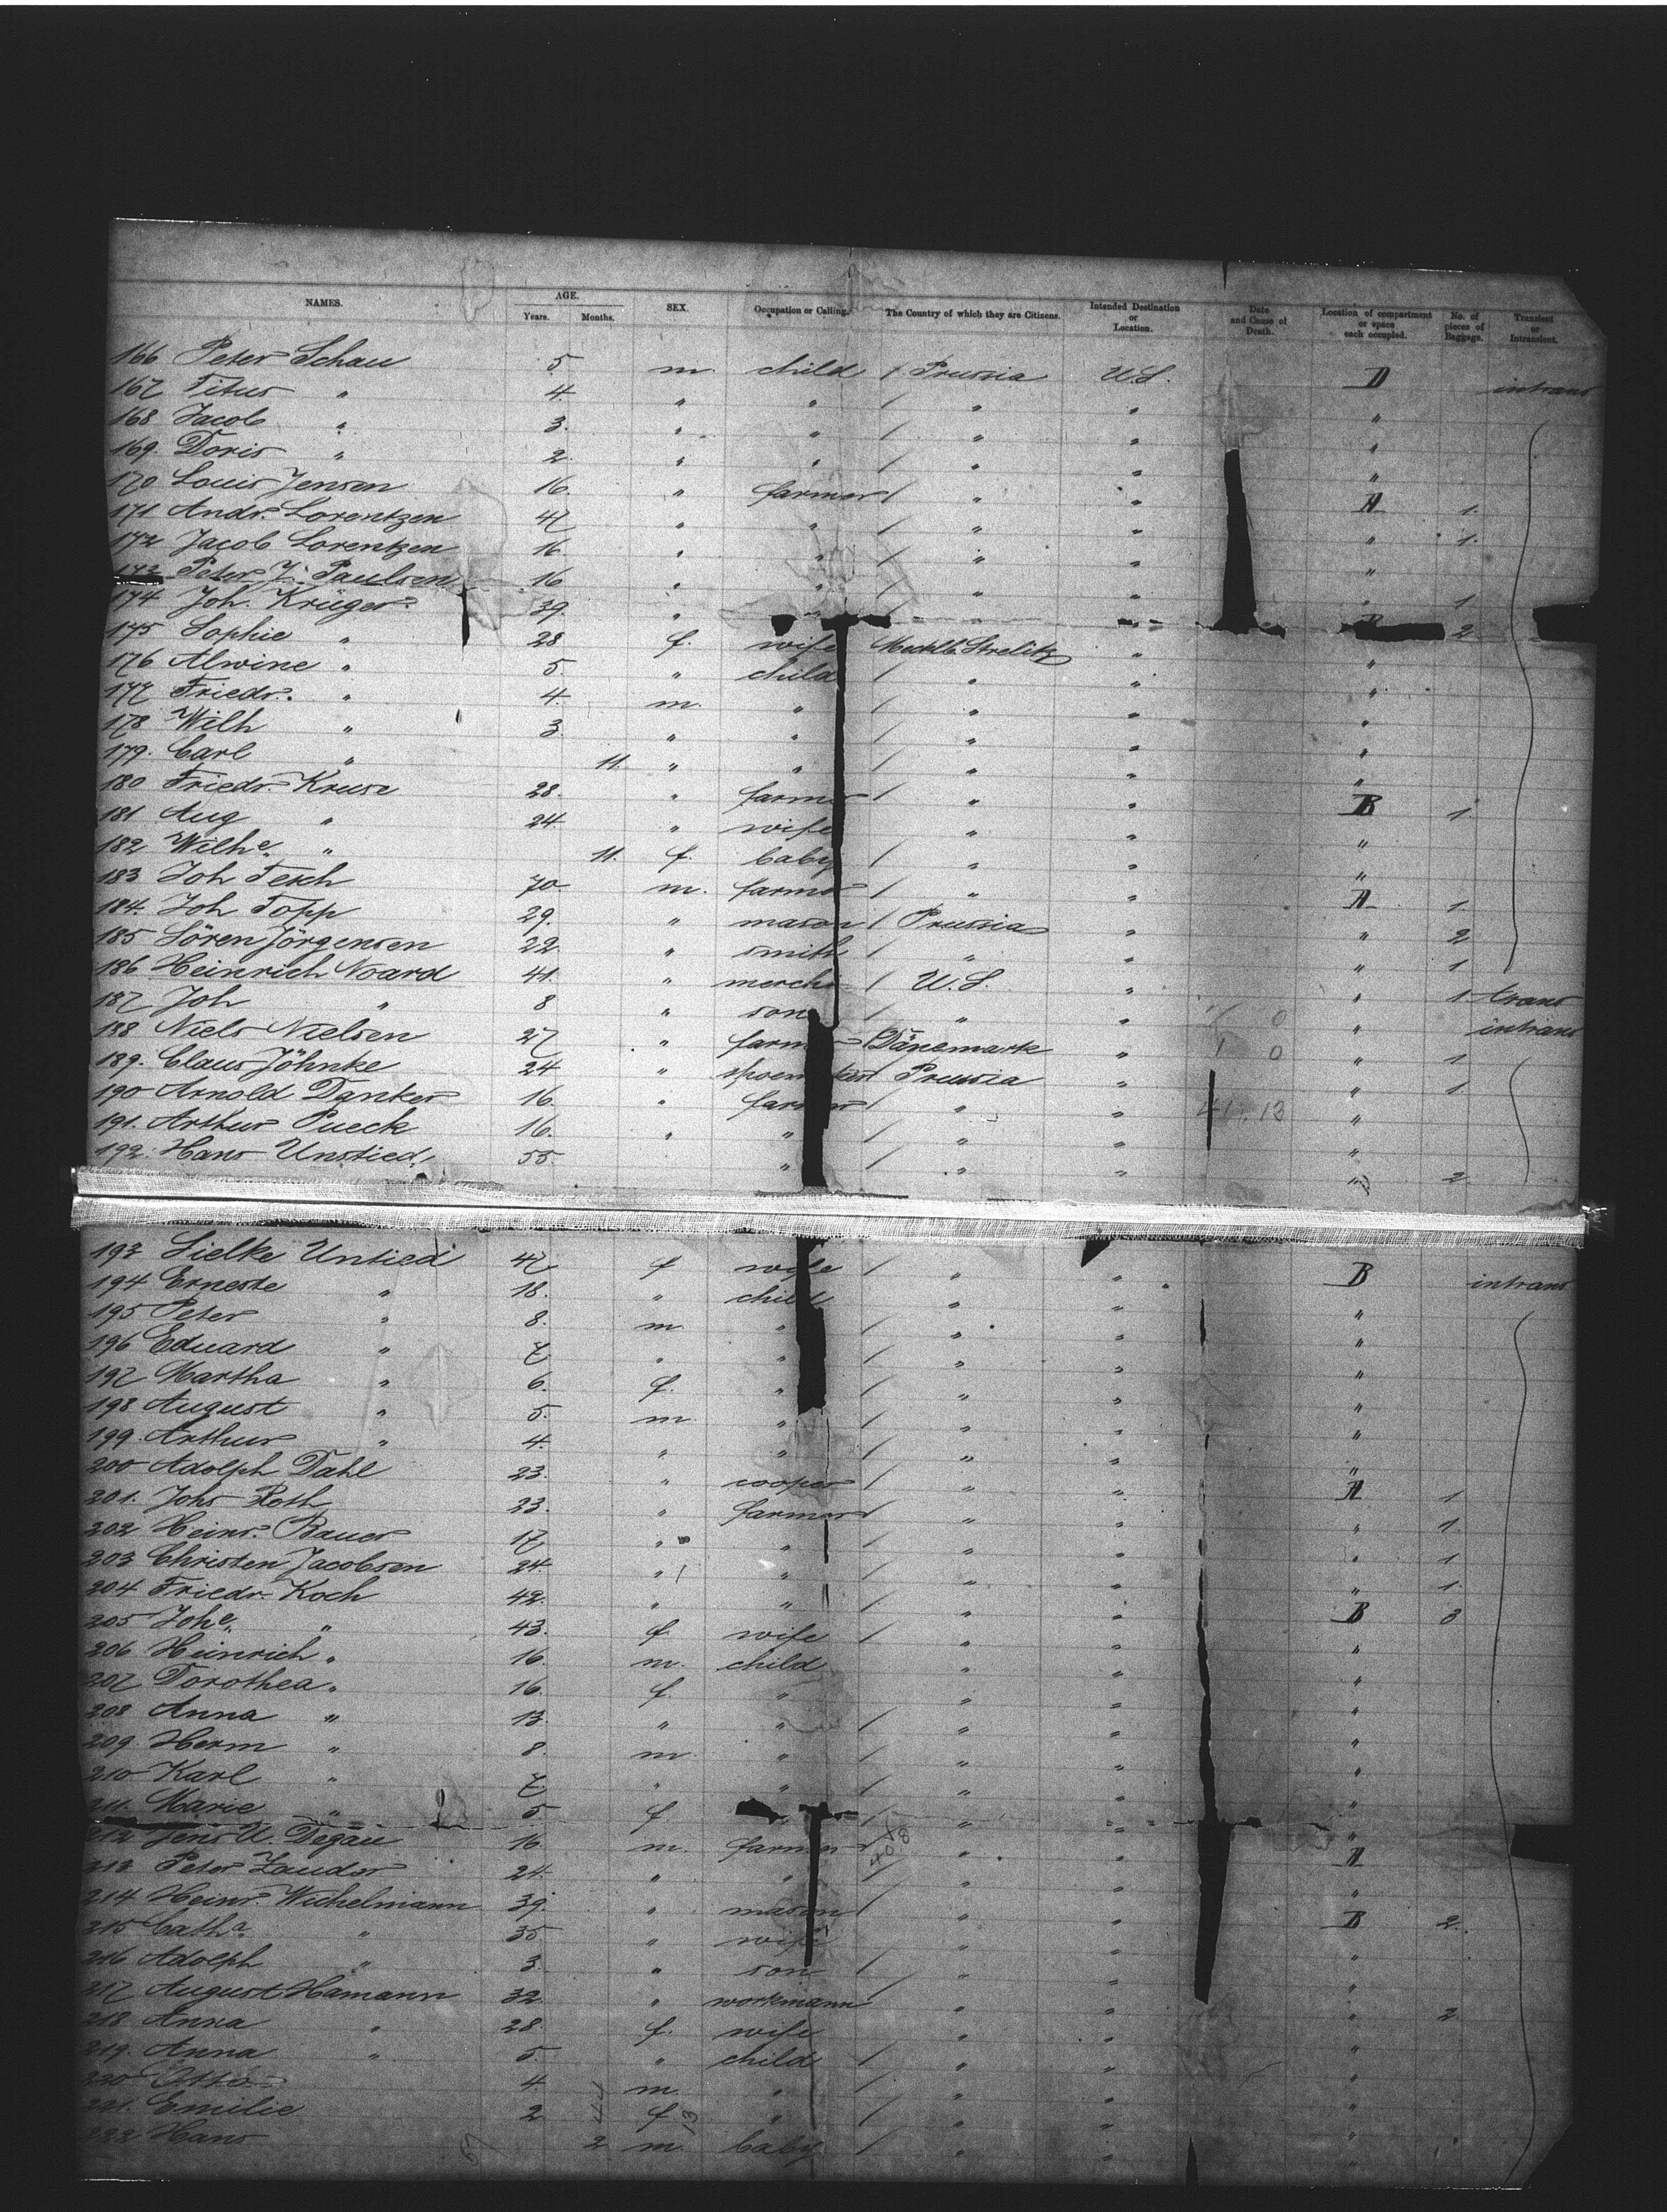 NAMES. AGE. Years. Months. SEX. Occupation or Calling. The Country of which they are Citizens. Intended Destination or Location. Date and Cause of Death. Location of compartment or space each occupied. No. of pieces of Baggage. Transient or Intransient.
166 Peter Schau 5. m. child / Prussia U.S. D intrans
167 Titus " 4. " " / " " "
168 Jacob " 3. " " / " " "
169. Doris " 2. " " / " " "
170 Louis Jensen 16. " farmer / " " A 1.
171 Andr. Lorentzen 47 " " / " " " 1.
172 Jacob Lorentzen 16. " " / " " "
173 Peter J. Paulsen 16 " " / " " " 1
174 Joh. Krüger 39. " 2
175 Sophie " 28 f. wife Meckl. Strelitz " "
176 Alwine " 5. " child / " " "
177 Friedr. " 4. m. " / " " "
178 Wilh " 3. " " / " " "
179. Carl " 11. " " / " " "
180 Friedr. Kruse 28. " farmer / " " B 1.
181 Aug " 24. " wife " " "
182 Wilhe. " 11. f. baby / " " "
183 Joh Tesch 70. m. farmer / " " A 1.
184. Joh Topp 29. " mason / Prussia " " 2
185 Sören Jörgensen 22. " smith / " " " 1
186 Heinrich Noard 41. " merch / U.S. " " 1 trans
187 Joh " 8 " son / " " " intrans
188 Niels Nielsen 27 " farmer / Dänemark " " 1
189. Claus Jöhnke 24 " / Prussia " " 1.
190 Arnold Danker 16. " farmer / " " "
191. Arthur Pueck 16. " " / " " "
192. Hans Unstied 55. " / " " 2
193 Lielke Untied 47 f wife / " " B intrans
194 Erneste " 18. " child " " "
195 Peter " 8. m. " / " " "
196 Eduard " 7 " " / " " "
197 Martha " 6. f. " / " " "
198 August " 5. m. " / " " "
199. Arthur " 4. " " / " " "
200 Adolph Dahl 23. " cooper / " " A 1
201. Johs Roth 23. " farmer / " " " 1.
202 Heinr. Bauer 17 " " / " " " 1
203 Christen Jacobsen 24. " " / " " " 1.
204 Friedr. Koch 42. " " / " " B 3
205 Johe. " 43. f. wife / " " "
206 Heinrich " 16. m. child " " "
207 Dorothea " 16. f. " " " "
208 Anna " 13. " " / " " "
209. Herm " 8. m. " / " " "
210 Karl " 7. " " / " " "
211. Marie " 5. f. " / " " "
212 Jens U. Degau 16. m. farmer " " A
213 Peter Zander 24. " " / " " "
214 Heinr. Wichelmann 39. " mason / " " B 2.
215 Catha. " 35 " wife " " "
216 Adolph " 3. " son / " " "
217 August Hamann 32. " workmann / " " " 2
218 Anna " 28. f. wife " " "
219. Anna " 5. " child / " " "
220 Otto 4. m. " / " " "
221. Emilie 2 f " / " " "
222 Hans 2 m. baby / " " "